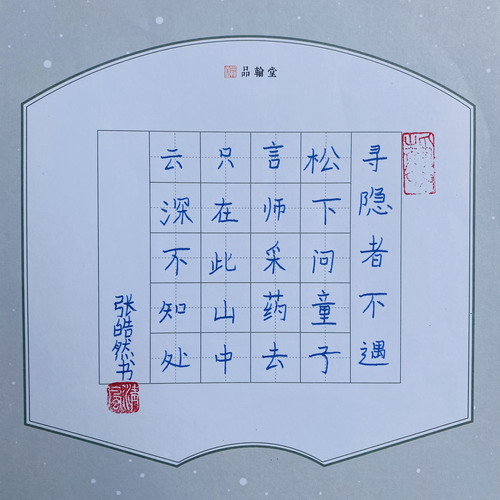 品翰堂
寻隐者不遇
松下问童子
言师采药去
只在此山中
云深不知处
张皓然书